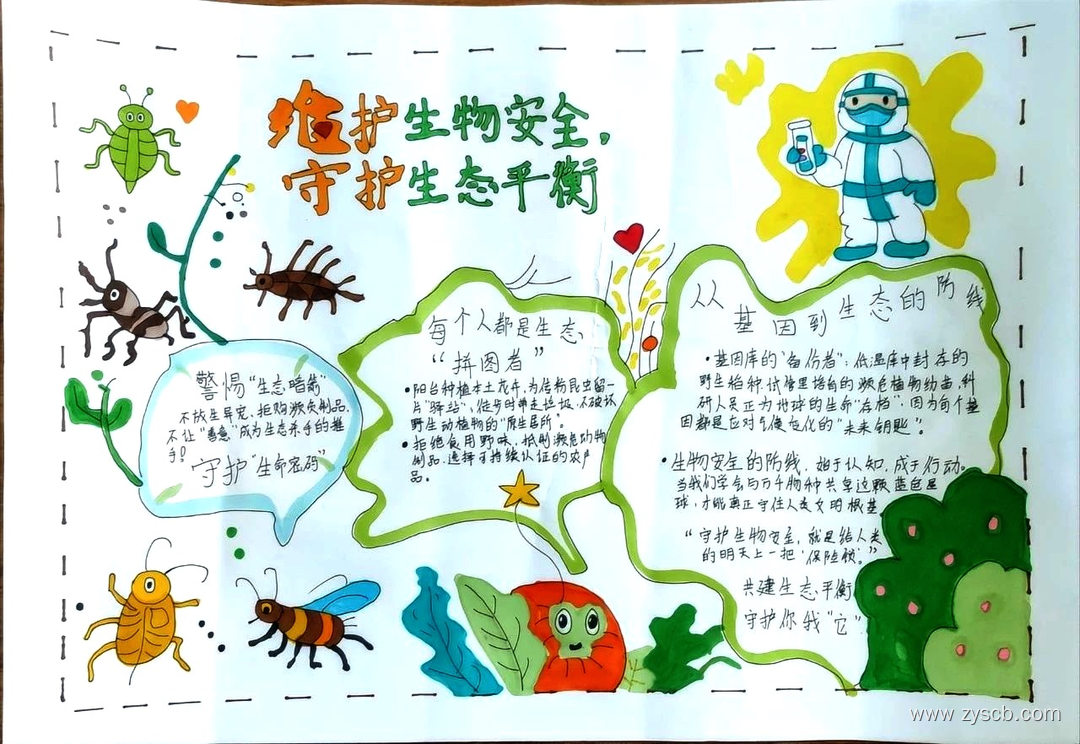 维护生物安全，
守护生态平衡
警惕“生态暗箭”
不放生异宠、拒购濒危制品，
不让“善意”成为生态杀手的推
手！
守护“生命密码”
每个人都是生态
“拼图者”
•阳台种植本土花卉，为传粉昆虫留一
片“驿站”，徒步时带走垃圾，不破坏
野生动植物的“原生居所”。
•拒绝食用野味，抵制濒危动物
制品，选择可持续认证的农产
品。
从基因到生态的防线
•基因库的“备份者”：低温库中封存的
野生稻种，试管里培育的濒危植物幼苗，科
研人员正为地球的生命“存档”，因为每个基
因都是应对气候变化的“未来钥匙”。
•生物安全的防线，始于认知，成于行动。
当我们学会与万千物种共享这颗蓝色星
球，才能真正守住人类文明的根基
“守护生物安全，就是给人类
的明天上一把‘保险锁’。”
共建生态平衡
守护你我“它”
www.zyscb.com